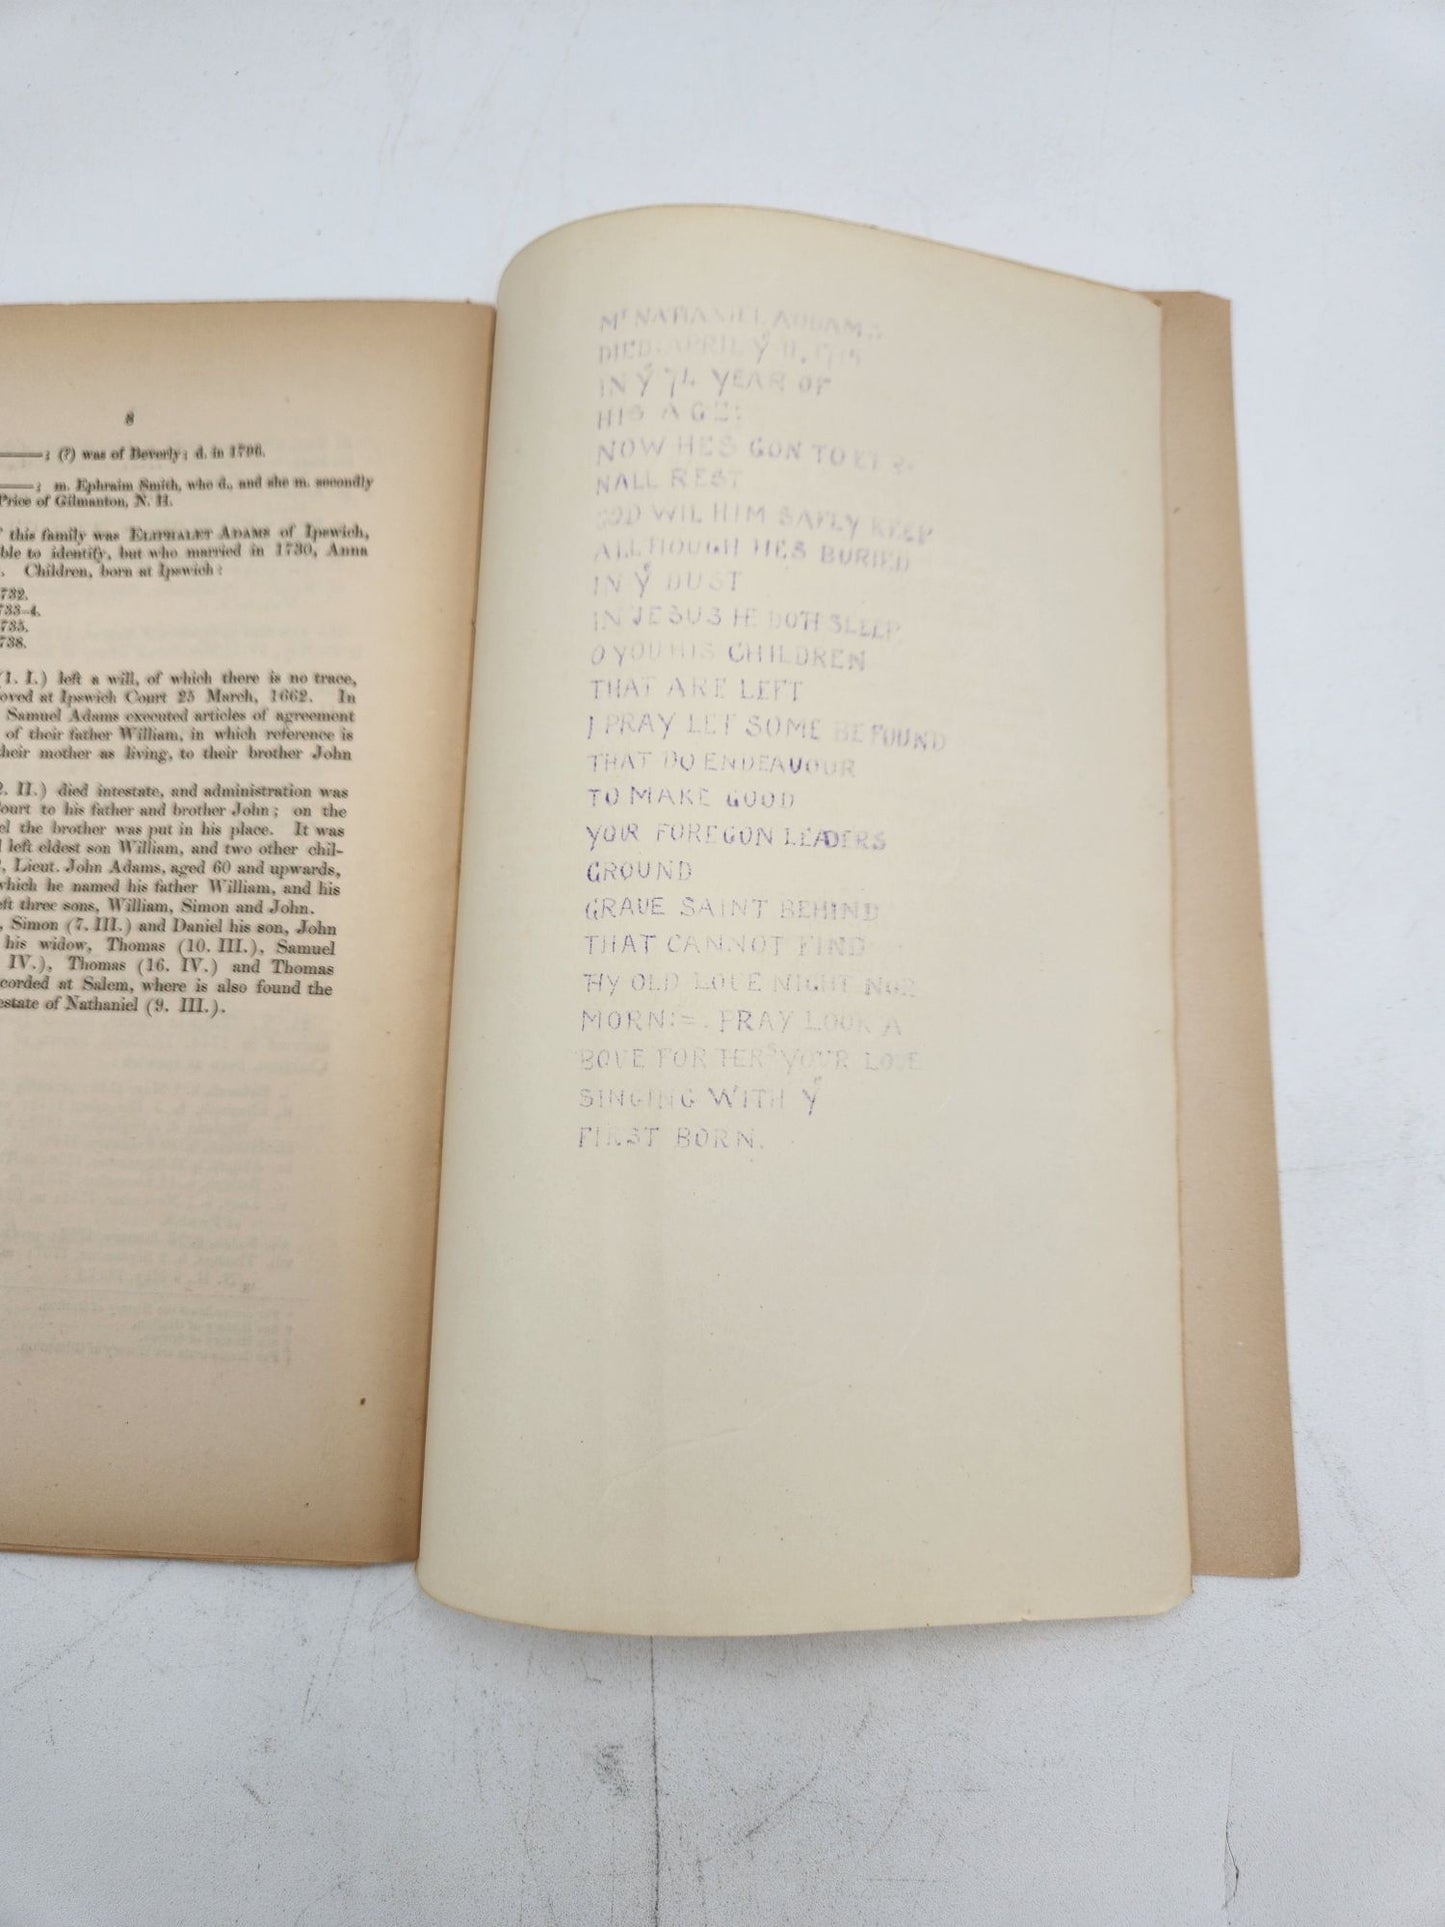 8
——; (?) was of Beverly; d. in 1796.
——; m. Ephraim Smith, who d., and she m. secondly
Price of Gilmanton, N. H.
this family was ELIPHALET ADAMS of Ipswich,
ble to identify, but who married in 1730, Anna
. Children, born at Ipswich:
732.
733-4.
735.
738.
(1. I.) left a will, of which there is no trace,
oved at Ipswich Court 25 March, 1662. In
Samuel Adams executed articles of agreement
of their father William, in which reference is
heir mother as living, to their brother John
2. II.) died intestate, and administration was
ourt to his father and brother John; on the
el the brother was put in his place. It was
left eldest son William, and two other chil-
, Lieut. John Adams, aged 60 and upwards,
which he named his father William, and his
eft three sons, William, Simon and John.
, Simon (7. III.) and Daniel his son, John
his widow, Thomas (10. III.), Samuel
IV.), Thomas (16. IV.) and Thomas
corded at Salem, where is also found the
estate of Nathaniel (9. III.).
Mr NATHANIEL ADDAMS
DIED: APRIL ye 11, 1715
IN ye 74 YEAR OF
HIS AGE:
NOW HES GON TO ETER
NALL REST
GOD WIL HIM SAFLY KEEP
ALLTHOUGH HES BURIED
IN ye DUST
IN JESUS HE DOTH SLEEP
O YOU HIS CHILDREN
THAT ARE LEFT
I PRAY LET SOME BE FOUND
THAT DO ENDEAVOUR
TO MAKE GOOD
YOUR FOREGON LEADERS
GROUND
GRAUE SAINT BEHIND
THAT CANNOT FIND
THY OLD LOUE NIGHT NOR
MORN:=. PRAY LOOK A
BOUE FOR TERS YOUR LOUE
SINGING WITH ye
FIRST BORN.